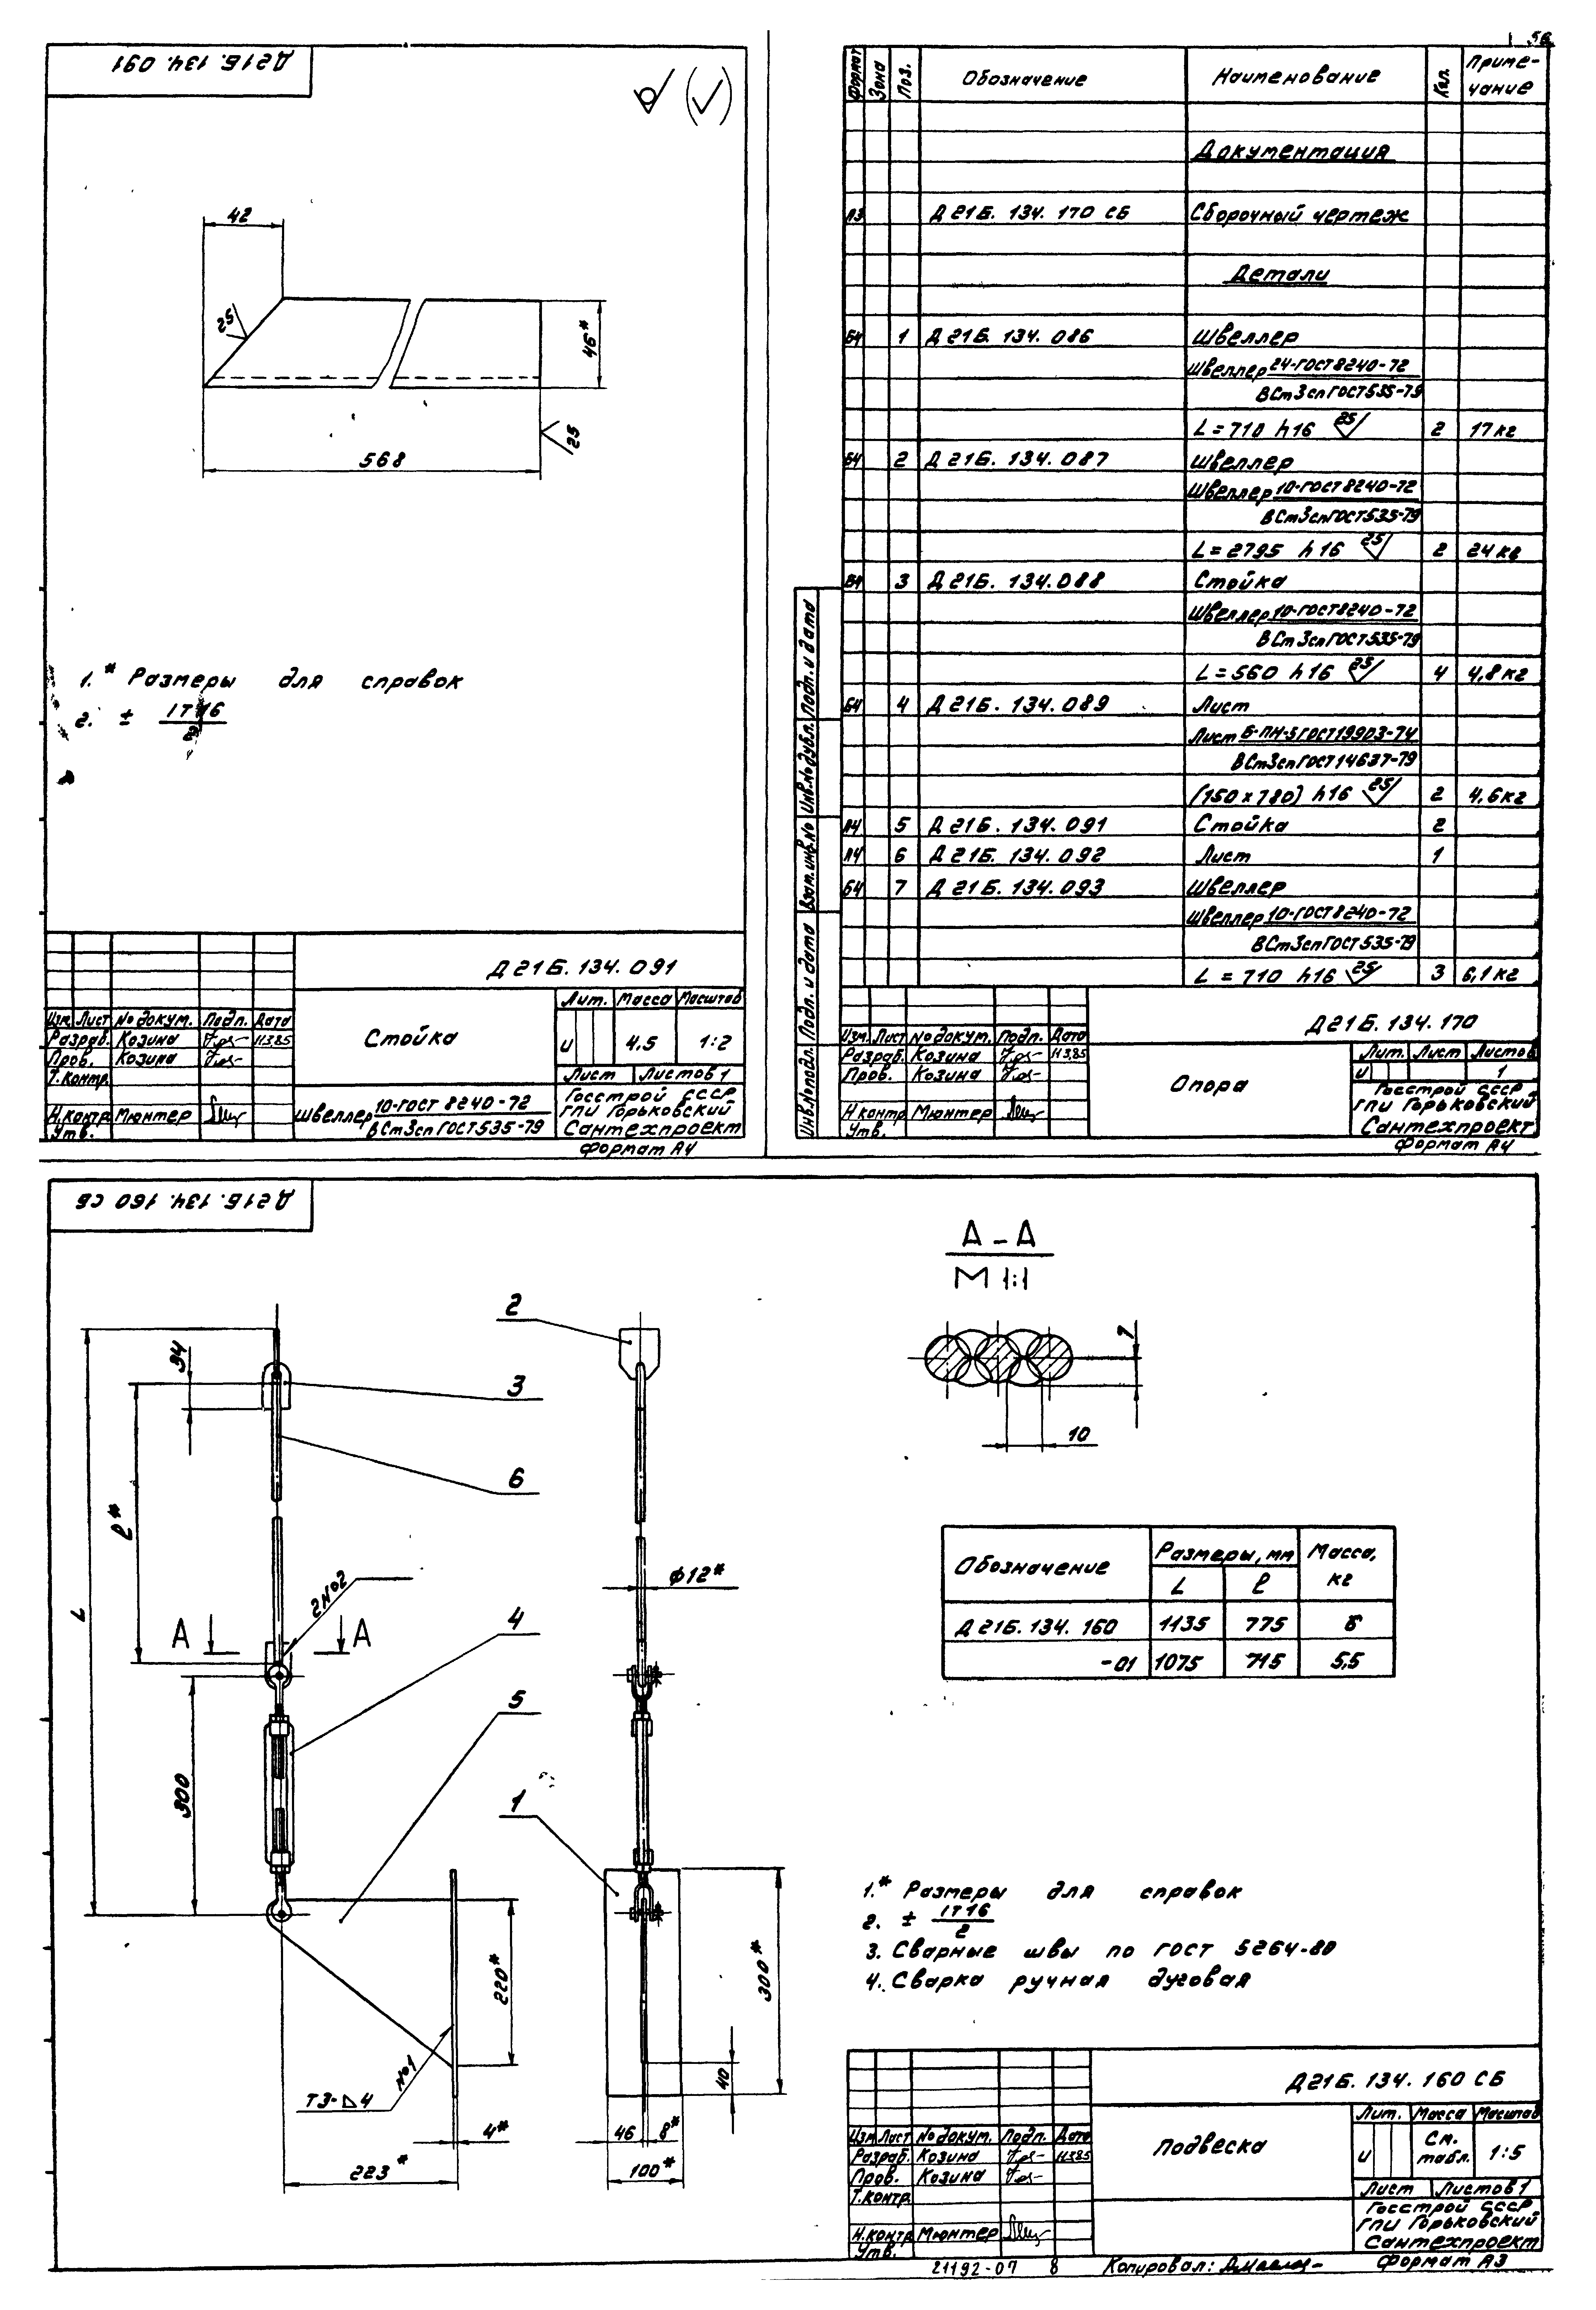 Д21Б. 134. 091
42
25
46*
25
568
1.* Размеры для справок
2. ± IT16
Д21Б. 134. 091
Лит. Масса Масштаб
Изм. Лист № докум. Подп. Дата
Стойка
Разраб. Козина 11.3.85
и 4,5 1:2
Пров. Козина
Т.контр.
Лист Листов 1
Н.контр Мюнтер
Утв.
Швеллер 10-ГОСТ 8240-72
ВСт3сп ГОСТ535-79
Госстрой СССР
ГПИ Горьковский
Сантехпроект
Формат А4
56
Формат Зона Поз. Обозначение Наименование Кол. Приме-
чание
Документация
А3 Д21Б. 134. 170 СБ Сборочный чертеж
Детали
Б4 1 Д21Б. 134. 086 Швеллер
Швеллер 24-ГОСТ8240-72
ВСт3сп ГОСТ535-79
L=710 h16 25 2 17кг
Б4 2 Д21Б. 134. 087 Швеллер
Швеллер 10-ГОСТ8240-72
ВСт3сп ГОСТ535-79
L=2795 h16 25 2 24кг
Б4 3 Д21Б. 134. 088 Стойка
Швеллер 10-ГОСТ8240-72
ВСт3сп ГОСТ535-79
L=560 h16 25 4 4,8кг
Б4 4 Д21Б. 134. 089 Лист
Лист 6-ПН-5 ГОСТ19903-74
ВСт3сп ГОСТ14637-79
(150х780) h16 25 2 4,6кг
А4 5 Д21Б. 134. 091 Стойка 2
А4 6 Д21Б. 134. 092 Лист 1
Б4 7 Д21Б. 134. 093 Швеллер
Швеллер 10-ГОСТ8240-72
ВСт3сп ГОСТ535-79
L=710 h16 25 3 6,1кг
Инв.№подл. Подп. и дата Взам.инв.№ Инв.№дубл. Подп. и дата
Д21Б. 134. 170
Изм. Лист № докум. Подп. Дата
Разраб. Козина 11.3.85
Пров. Козина
Н.контр Мюнтер
Утв.
Опора
Лит. Лист Листов
и 1
Госстрой СССР
ГПИ Горьковский
Сантехпроект
Формат А4
Д21Б. 134. 160 СБ
А-А
М 1:1
7
10
2
34
3
6
L
ℓ*
2№2
А А
4
5
300
1
ϕ12*
220*
300*
40
Т3-◺4
№1
4*
223*
46 8*
100*
Обозначение Размеры, мм Масса,
кг
L ℓ
Д21Б. 134. 160 1135 775 6
-01 1075 715 5,5
1.* Размеры для справок
2. ± IT16
2
3. Сварные швы по ГОСТ 5264-80
4. Сварка ручная дуговая
Д21Б. 134. 160 СБ
Изм Лист № докум. Подп. Дата
Разраб. Козина 11.3.85
Пров. Козина
Т.контр.
Н.контр Мюнтер
Утв.
Подвеска
Лит. Масса Масштаб
и См.
табл. 1:5
Лист Листов 1
Госстрой СССР
ГПИ Горьковский
Сантехпроект
21192-07 8 Копировал: Формат А3